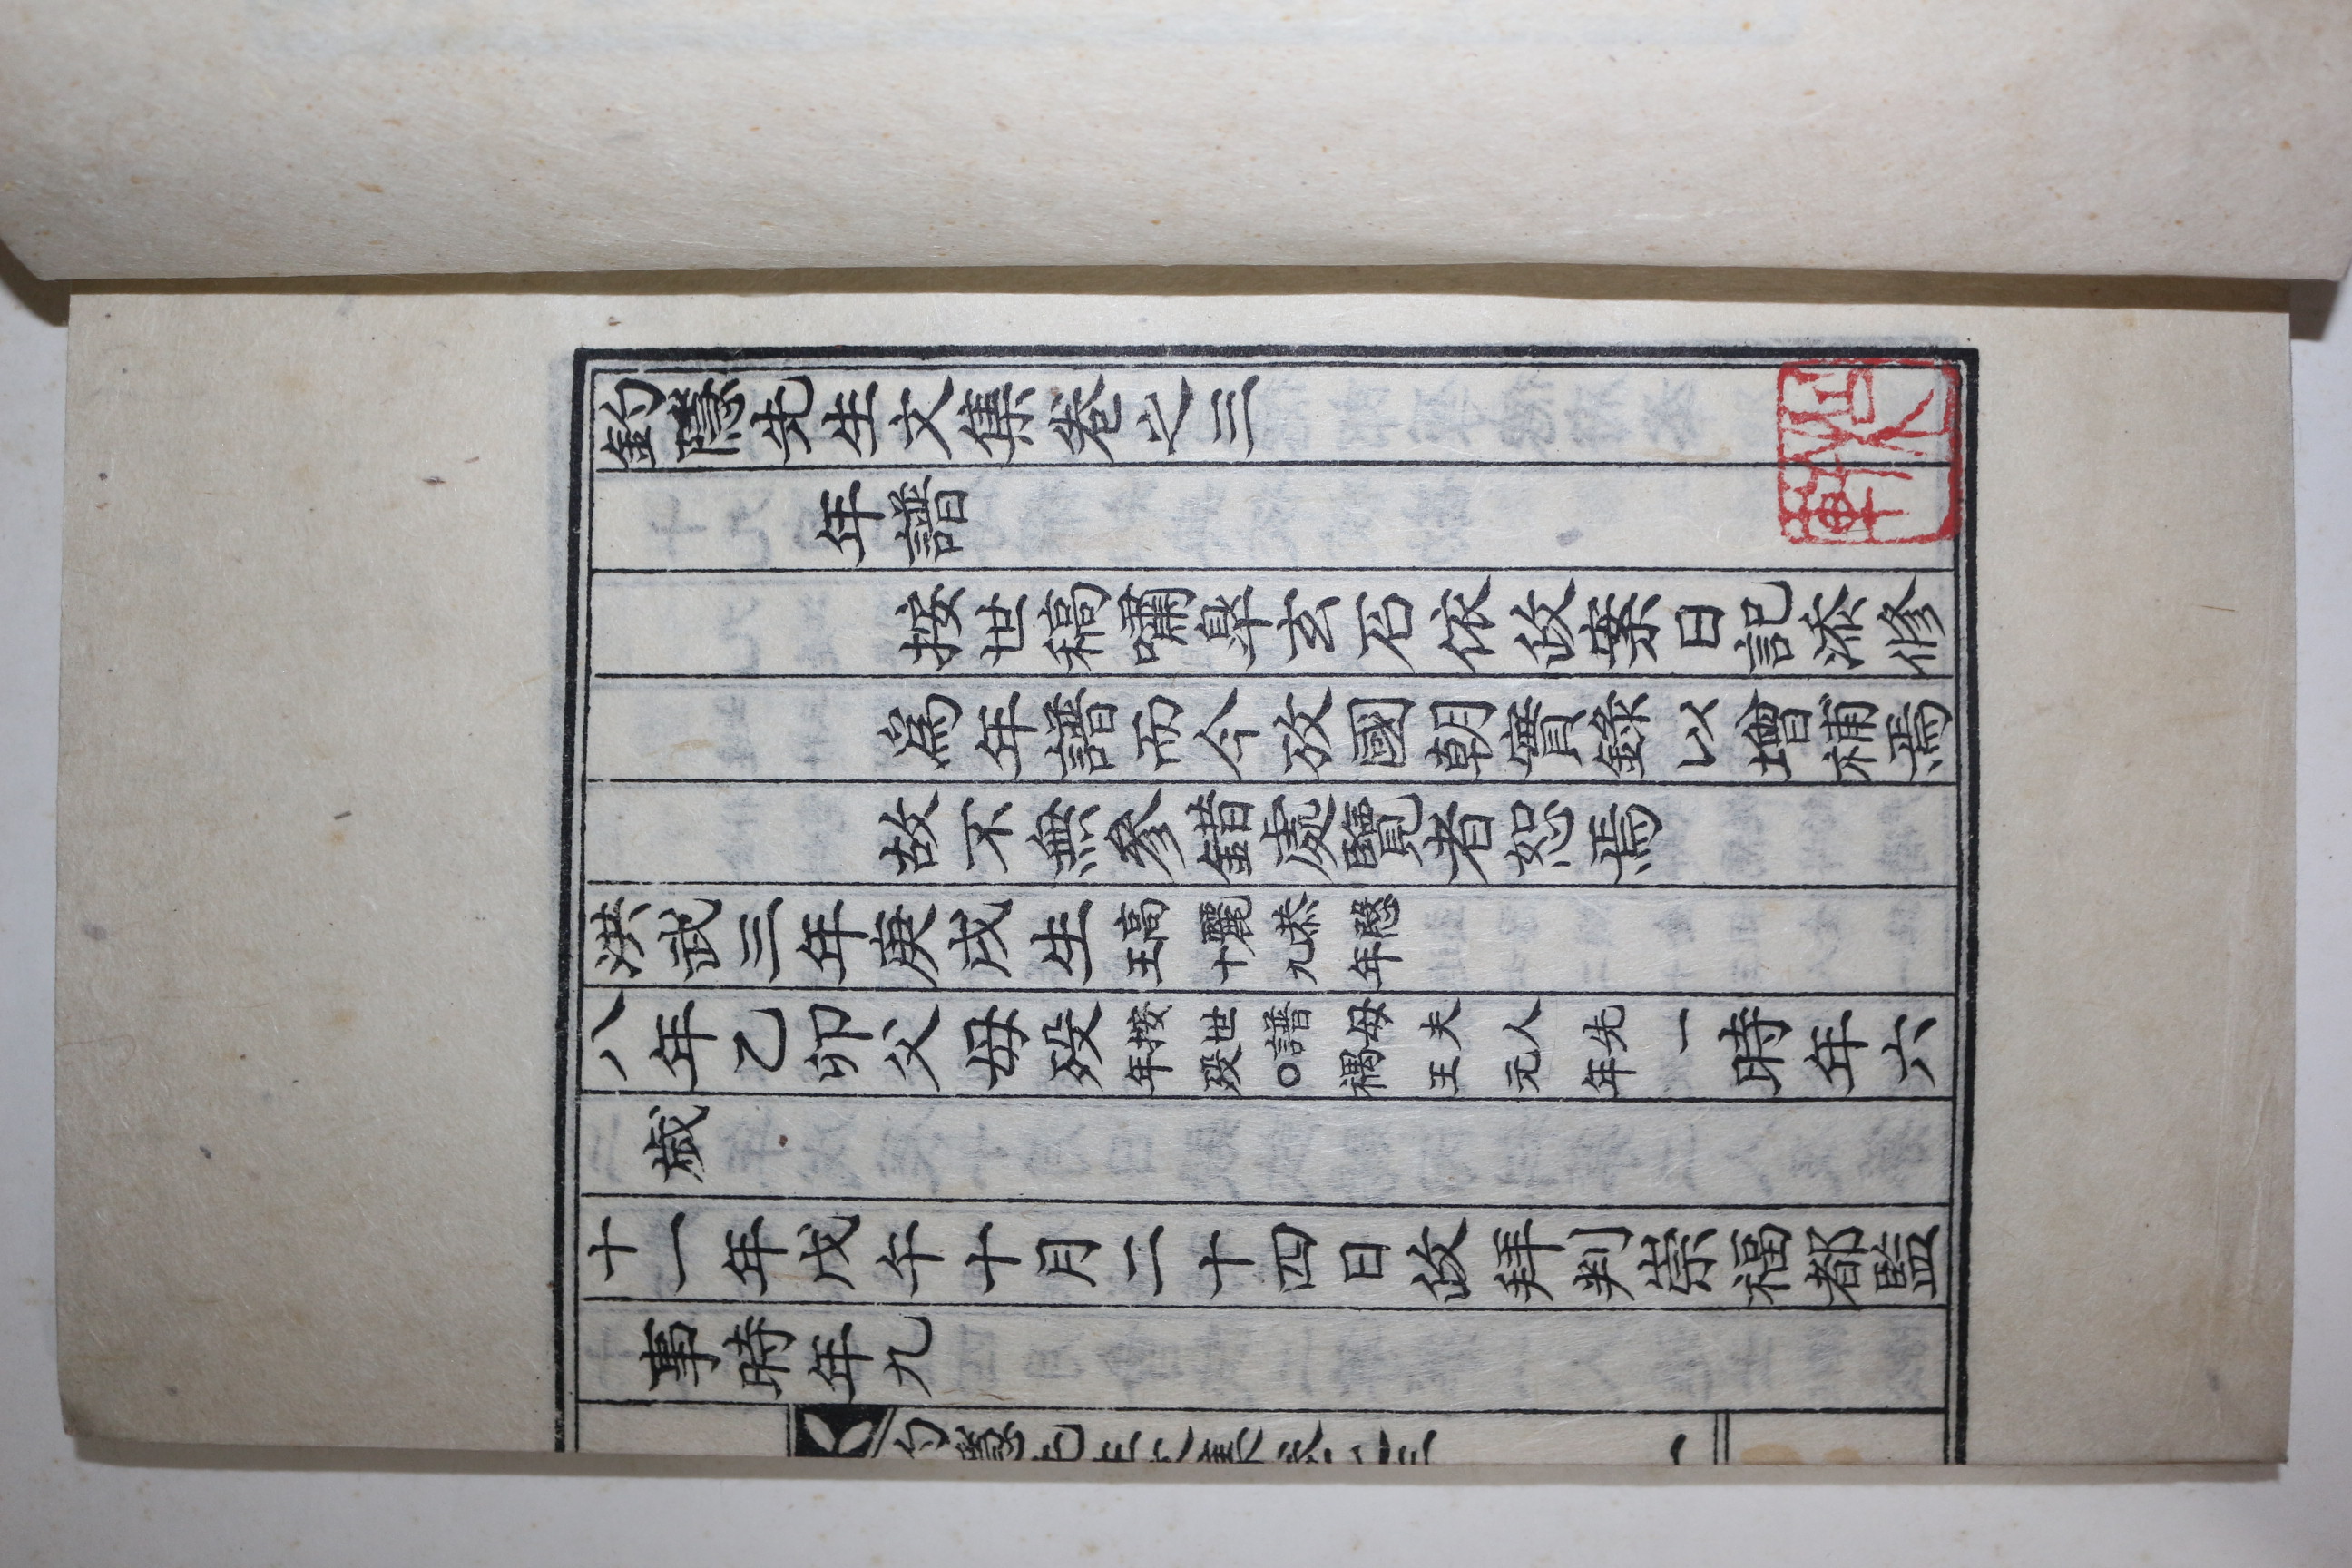 釣隱先生文集卷之三
年譜
按世稿嘯皐玄石依政案日記添修
爲年譜而今攷國朝實錄以增補焉
故不無參錯處覽者恕焉
洪武三年庚戌生高麗恭愍王十九年
八年乙卯父母歿按世譜母夫人先一年歿○禑王元年時年六
歲
十一年戊午十月二十四日政拜判崇福都監
事時年九
釣隱先生文集卷之三
一